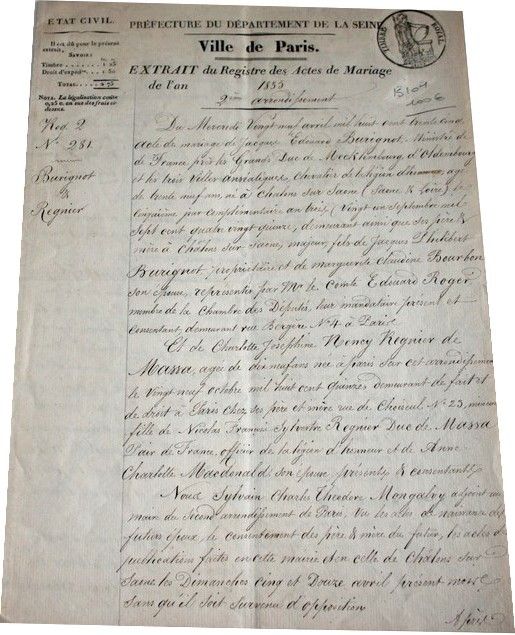 ETAT CIVIL.
Il est dû pour le présent
extrait,
SAVOIR:
Timbre
Droit d'expédon
TOTAL
NOTA. La légalisation coûte
0,25 c. en sus des frais ci-
dessus.
Reg. 2
N° 281
Burignot
&
Regnier
PRÉFECTURE DU DÉPARTEMENT DE LA SEINE
Ville de Paris.
EXTRAIT du Registre des Actes de Mariage
de l'an 1835
2ème arrondissement
TIMBRE ROYAL
Du Mercredi Vingt neuf avril mil huit cent trente cinq
acte de mariage de Jacques Edouard Burignot, Ministre
de France près les Grands Duc de Mecklenbourg d'Oldenbourg
et les trois Villes anséatiques, chevalier de la légion d'honneur, agé
de trente neuf ans, né à Chalons sur Saone (Saone & Loire) le
cinquième jour complémentaire an trois (Vingt un Septembre mil
Sept cent quatre vingt quinze, demeurant ainsi que ses père &
mère à Châlons sur Saone, majeur, fils de Jacques Philibert
Burignot, propriétaire et de marguerite claudine Bourbon
son épouse, représentés par Mr le Comte Edouard Roger
membre de la Chambre des Députés, leur mandataire présent et
consentant, demeurant rue Bergère N° 4 à Paris
Et de Charlotte Joséphine Nancy Regnier de
Massa, agée de dix neuf ans née à paris sur cet arrondissement
le Vingt neuf octobre mil huit cent quinze, demeurant de fait et
de droit à Paris Chez ses père et mère rue de Choiseul N° 23, mineure
fille de Nicolas François Sylvestre Regnier Duc de Massa
Pair de France, officier de la légion d'honneur et de Anne
Charlotte Macdonald son épouse, présents & consentants
Nous Sylvain Charles Théodore Mongalvy adjoint au
maire du Second arrondissement de Paris, vu les actes de naissance des
futurs époux, le consentement des père & mère du futur, les actes de
publications faites en cette mairie et en celle de Chalons sur
Saone les Dimanches Cinq et Douze avril présent mois
Sans qu'il soit survenu d'opposition
Après